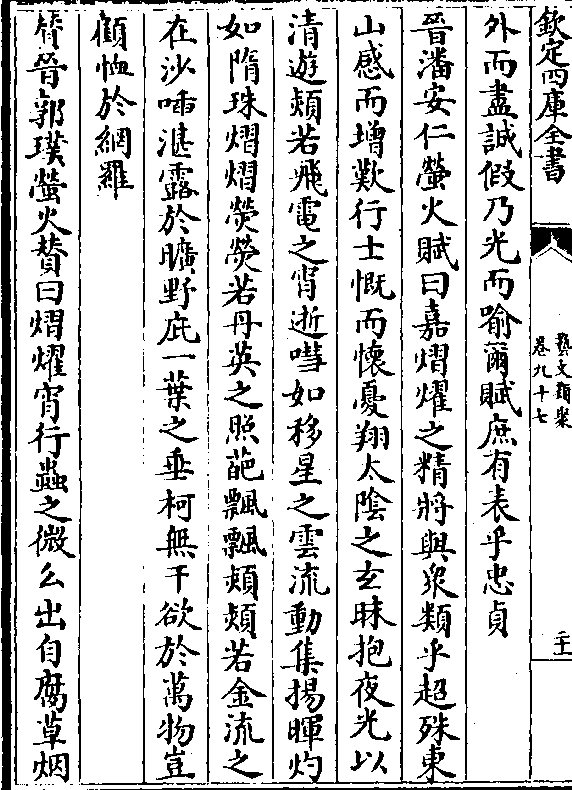 欽定四庫全書
藝文類聚
卷九十七
二十
外而盡誠假乃光而喻爾賦庶有表乎忠貞
晉潘安仁螢火賦曰嘉熠燿之精將與衆類乎超殊東
山感而增歎行士慨而懷憂翔太陰之玄昧抱夜光以
清遊頍若飛電之宵逝嘒如移星之雲流動集揚暉灼
如隋珠熠熠熒熒若丹英之照葩飄飄頍頍若金流之
在沙
湛露於曠野庇一葉之垂柯無干欲於萬物豈
顧恤於網羅
晉郭璞螢火賛曰熠燿宵行蟲之微么出自腐草烟